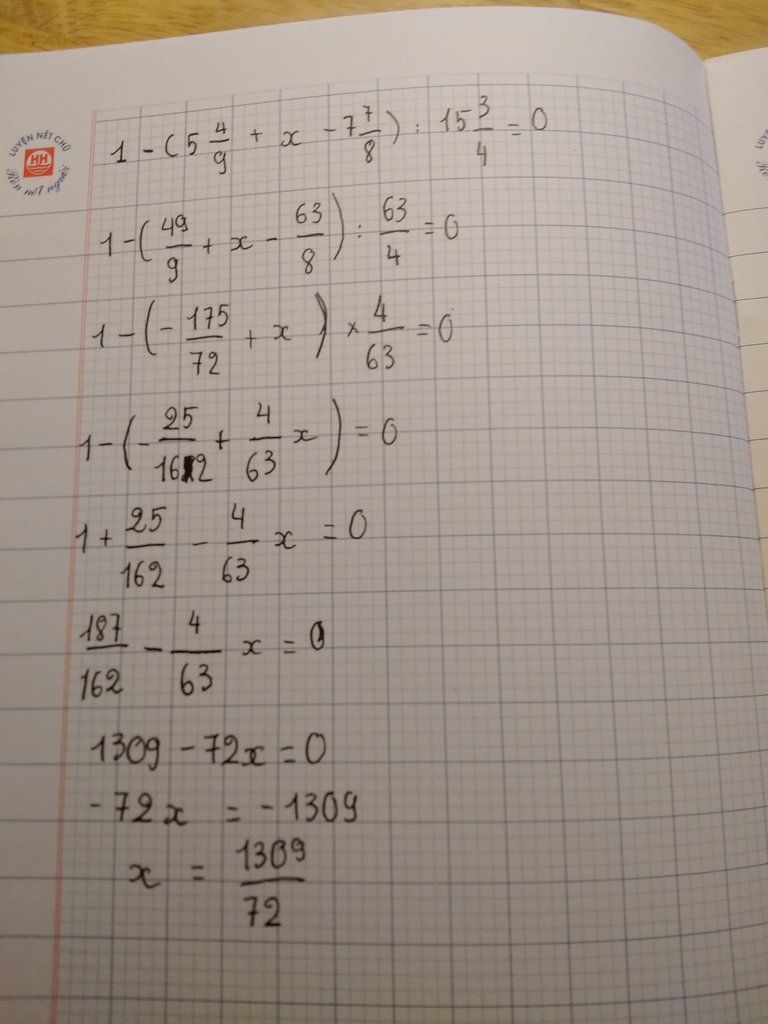 LUYỆN NÉT CHỮ
HH
Rèn nết người
1 - (5 4/9 + x - 7 7/8) : 15 3/4 = 0
1 - (49/9 + x - 63/8) : 63/4 = 0
1 - (- 175/72 + x) × 4/63 = 0
1 - (- 25/162 + 4/63 x) = 0
1 + 25/162 - 4/63 x = 0
187/162 - 4/63 x = 0
1309 - 72x = 0
-72x = -1309
x = 1309/72